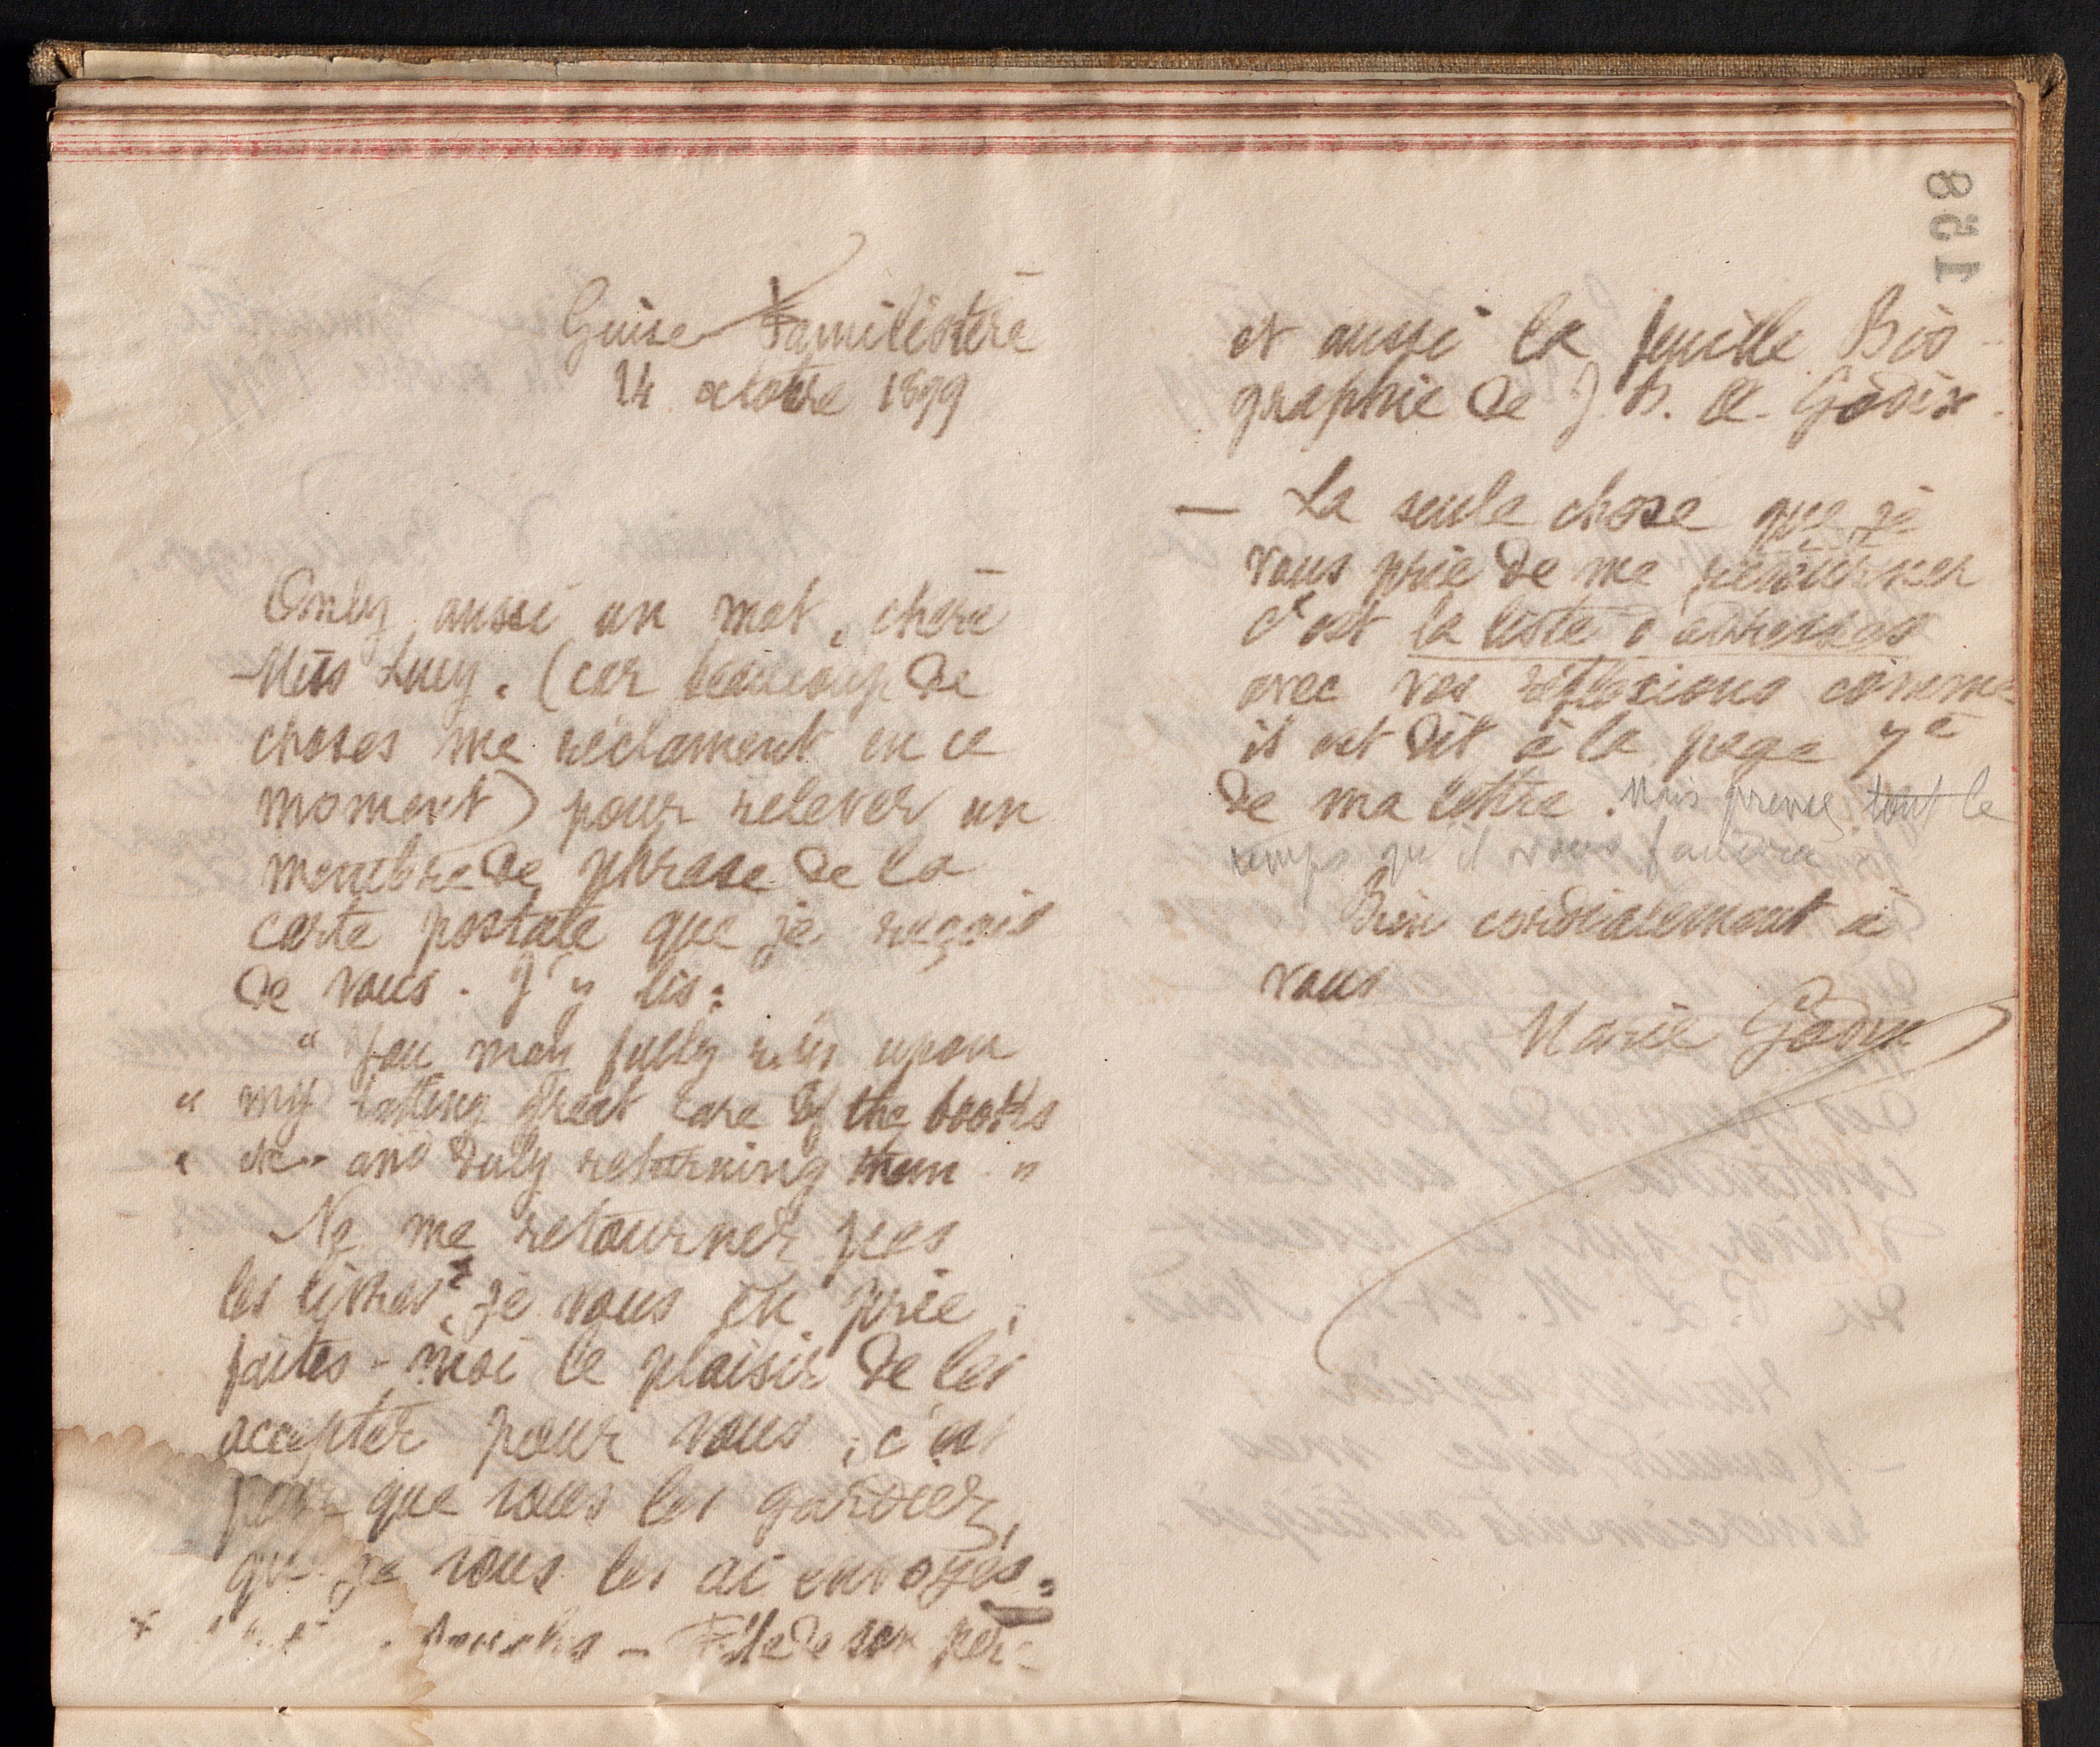 158
Guise Familistère
14 octobre 1899
Only, aussi un mot, chère
Miss Lucy. (car beaucoup de
choses me réclament en ce
moment) pour relever un
membre de phrase de la
carte postale que je reçois
de vous. J'y lis:
" You may fully rely upon
" my taking great care of the books
" and duly returning them "
Ne me retournez pas
les livres, je vous en prie,
faites-moi le plaisir de les
accepter pour vous, c'est
pour que vous les gardiez,
que je vous les ai envoyés.
et aussi la feuille Bio-
graphie de J. B. A. Godin.
— La seule chose que je
vous prie de me retourner
c'est la liste d'adresses
avec vos réflexions comme
il est dit à la page 7e
de ma lettre. Mais prenez tout le
temps qu'il vous faudra
Bien cordialement à
vous
Marie Godin